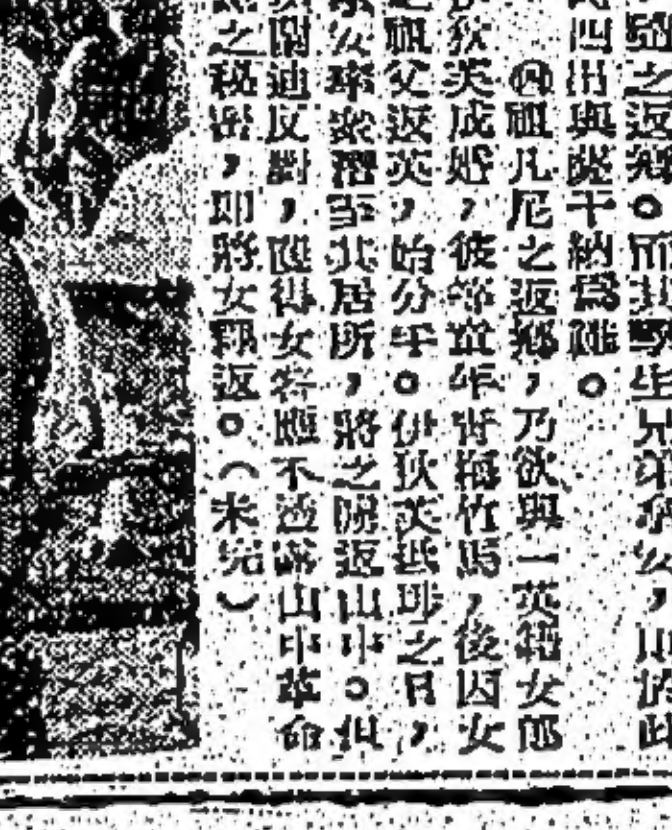 之返鄉。而其孿生兄弟
四出與干納為難。
㊃祖凡尼之返鄉,乃欲與一英籍女郎
狄芙成婚,彼等童年青梅竹馬,後因女
祖父返英,始分手。伊狄芙抵之日,
么率眾潛至其居所,將之擄返山中。但
迪反對,得女答應不透露山中革命
之秘密,即將女釋返。(未完)